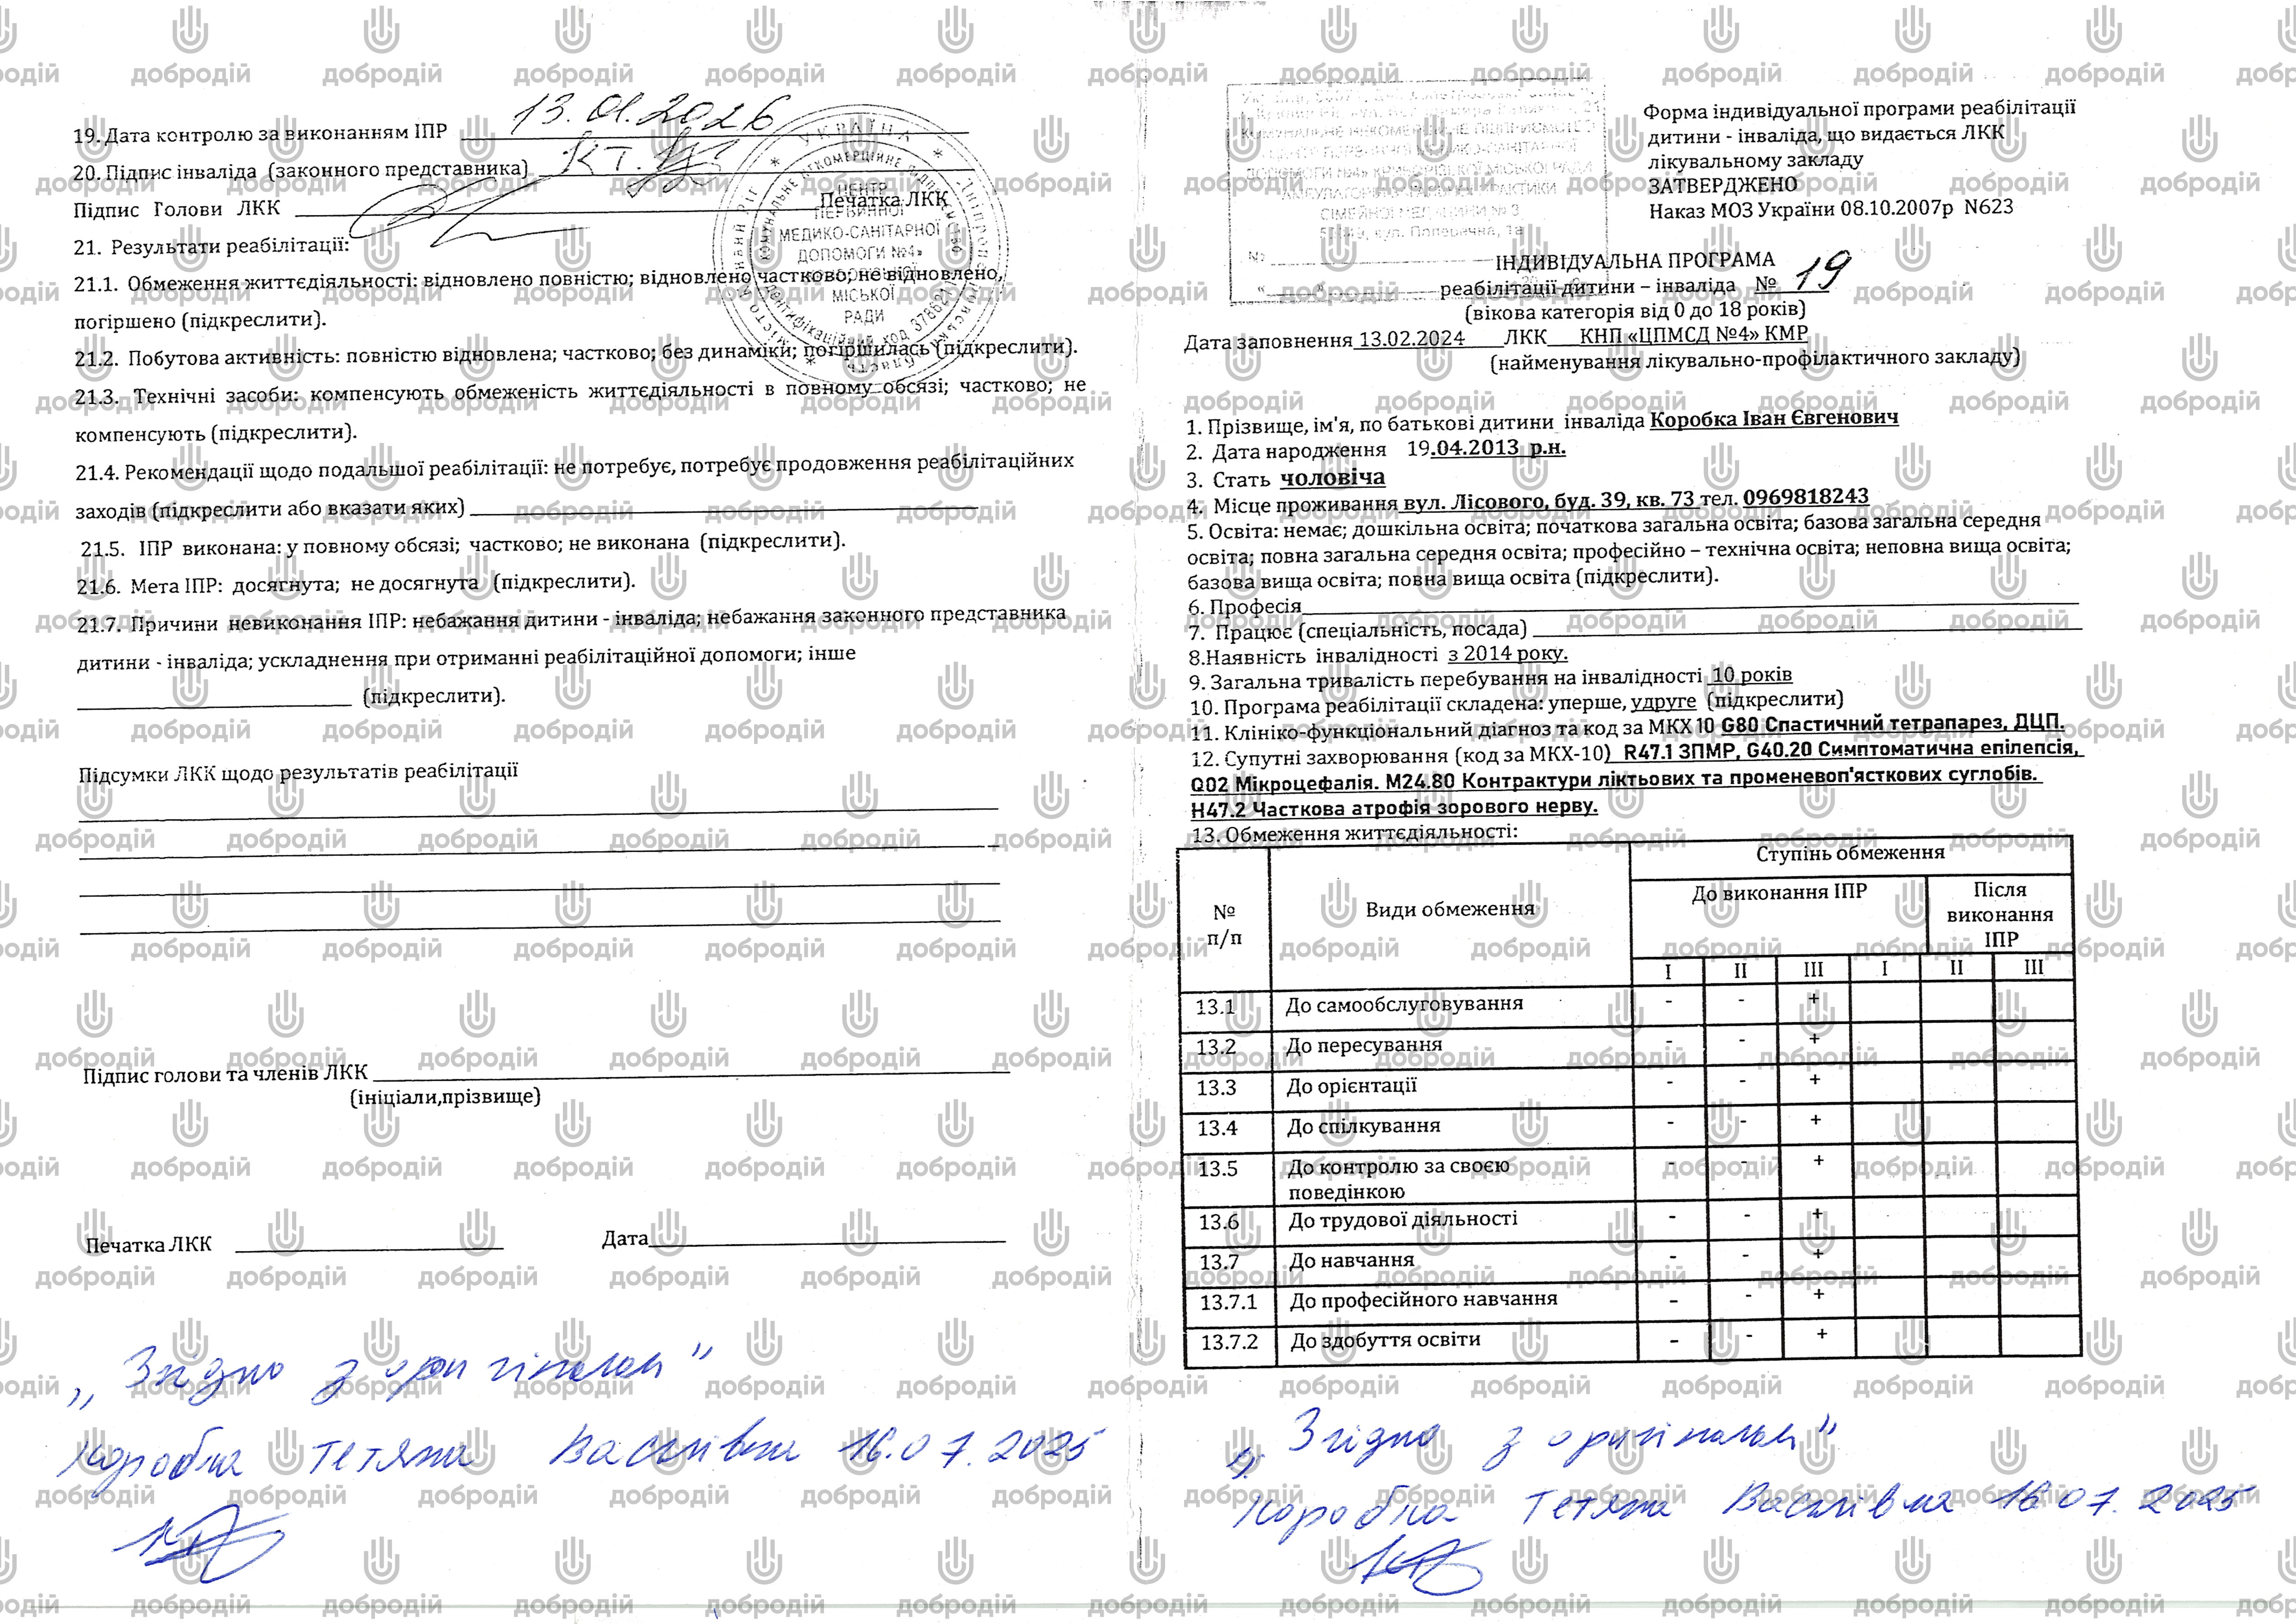 19. Дата контролю за виконанням ІПР 13.01.2026
20. Підпис інваліда (законного представника)
Підпис Голови ЛКК Печатка ЛКК
21. Результати реабілітації:
21.1. Обмеження життєдіяльності: відновлено повністю; відновлено частково; не відновлено,
погіршено (підкреслити).
21.2. Побутова активність: повністю відновлена; частково; без динаміки; погіршилась (підкреслити).
21.3. Технічні засоби: компенсують обмеженість життєдіяльності в повному обсязі; частково; не
компенсують (підкреслити).
21.4. Рекомендації щодо подальшої реабілітації: не потребує, потребує продовження реабілітаційних
заходів (підкреслити або вказати яких)
21.5. ІПР виконана: у повному обсязі; частково; не виконана (підкреслити).
21.6. Мета ІПР: досягнута; не досягнута (підкреслити).
21.7. Причини невиконання ІПР: небажання дитини - інваліда; небажання законного представника
дитини - інваліда; ускладнення при отриманні реабілітаційної допомоги; інше
(підкреслити).
Підсумки ЛКК щодо результатів реабілітації
Підпис голови та членів ЛКК
(ініціали,прізвище)
Печатка ЛКК Дата
„Згідно з оригіналом"
Коробка Тетяна Василівна 16.07.2025
УКРАЇНА
КОМУНАЛЬНЕ НЕКОМЕРЦІЙНЕ ПІДПРИЄМСТВО
ЦЕНТР
ПЕРВИННОЇ
МЕДИКО-САНІТАРНОЇ
ДОПОМОГИ №4»
МІСЬКОЇ
РАДИ
КОМУНАЛЬНЕ НЕКОМЕРЦІЙНЕ ПІДПРИЄМСТВО
ДОПОМОГИ №4» КРИВОРІЗЬКОЇ МІСЬКОЇ РАДИ
СІМЕЙНОЇ МЕДИЦИНИ № 3
вул. Поперечна, 1а
№
Форма індивідуальної програми реабілітації
дитини - інваліда, що видається ЛКК
лікувальному закладу
ЗАТВЕРДЖЕНО
Наказ МОЗ України 08.10.2007р N623
ІНДИВІДУАЛЬНА ПРОГРАМА
реабілітації дитини – інваліда № 19
(вікова категорія від 0 до 18 років)
Дата заповнення 13.02.2024 ЛКК КНП «ЦПМСД №4» КМР
(найменування лікувально-профілактичного закладу)
1. Прізвище, ім'я, по батькові дитини інваліда Коробка Іван Євгенович
2. Дата народження 19.04.2013 р.н.
3. Стать чоловіча
4. Місце проживання вул. Лісового, буд. 39, кв. 73 тел. 0969818243
5. Освіта: немає; дошкільна освіта; початкова загальна освіта; базова загальна середня
освіта; повна загальна середня освіта; професійно – технічна освіта; неповна вища освіта;
базова вища освіта; повна вища освіта (підкреслити).
6. Професія
7. Працює (спеціальність, посада)
8.Наявність інвалідності з 2014 року.
9. Загальна тривалість перебування на інвалідності 10 років
10. Програма реабілітації складена: уперше, удруге (підкреслити)
11. Клініко-функціональний діагноз та код за МКХ 10 G80 Спастичний тетрапарез, ДЦП.
12. Супутні захворювання (код за МКХ-10) R47.1 ЗПМР, G40.20 Симптоматична епілепсія,
Q02 Мікроцефалія. M24.80 Контрактури ліктьових та променевоп'ясткових суглобів.
H47.2 Часткова атрофія зорового нерву.
13. Обмеження життєдіяльності:
№ п/п Види обмеження Ступінь обмеження
До виконання ІПР Після виконання ІПР
I II III I II III
13.1 До самообслуговування - - +
13.2 До пересування - - +
13.3 До орієнтації - - +
13.4 До спілкування - - +
13.5 До контролю за своєю поведінкою - - +
13.6 До трудової діяльності - - +
13.7 До навчання - - +
13.7.1 До професійного навчання - - +
13.7.2 До здобуття освіти - - +
„Згідно з оригіналом"
Коробка Тетяна Василівна 16.07.2025
добродій